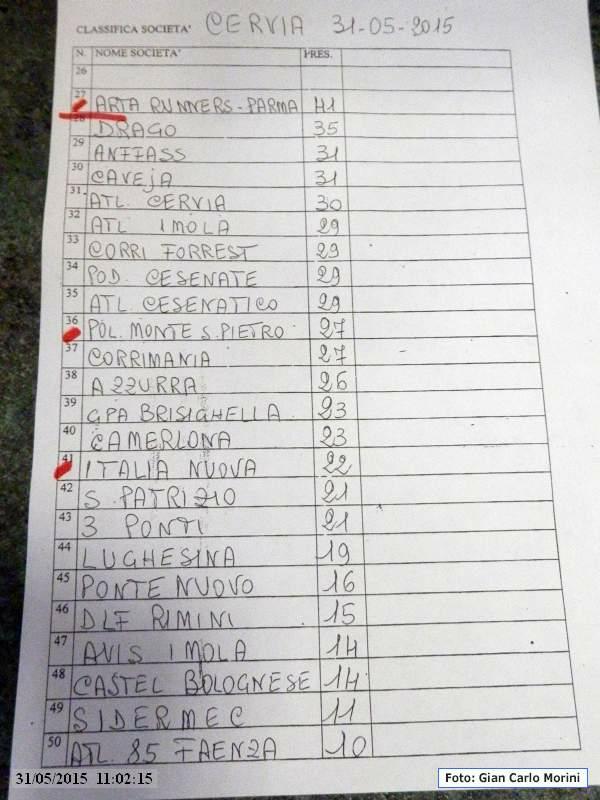 CLASSIFICA SOCIETA' CERVIA 31-05-2015
N. NOME SOCIETA' PRES.
26
27 ARTA RUNNERS-PARMA 41
28 DRAGO 35
29 ANFFASS 31
30 CAVEJA 31
31 ATL. CERVIA 30
32 ATL IMOLA 29
33 CORRI FORREST 29
34 POD. CESENATE 29
35 ATL. CESENATICO 29
36 POL. MONTE S. PIETRO 27
37 CORRIMANIA 27
38 AZZURRA 26
39 GPA BRISIGHELLA 23
40 CAMERLONA 23
41 ITALIA NUOVA 22
42 S. PATRIZIO 21
43 3 PONTI 21
44 LUGHESINA 19
45 PONTE NUOVO 16
46 DLF RIMINI 15
47 AVIS IMOLA 14
48 CASTEL BOLOGNESE 14
49 SIDERMEC 11
50 ATL. 85 FAENZA 10
31/05/2015 11:02:15
Foto: Gian Carlo Morini